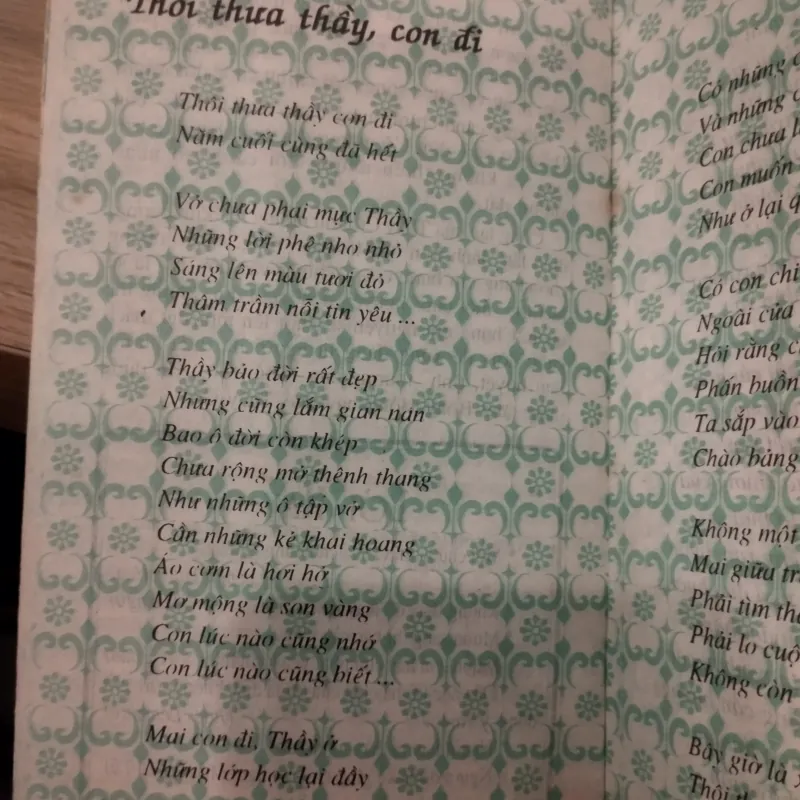 Thôi thưa thầy, con đi
Thôi thưa thầy con đi
Năm cuối cùng đã hết
Vở chưa phai mực Thầy
Những lời phê nho nhỏ
Sáng lên màu tươi đỏ
Thâm trầm nỗi tin yêu ...
Thầy bảo đời rất đẹp
Nhưng cũng lắm gian nan
Bao ô đời còn khép
Chưa rộng mở thênh thang
Như những ô tập vở
Cần những kẻ khai hoang
Áo cơm là hơi hở
Mơ mộng là son vàng
Con lúc nào cũng nhớ
Con lúc nào cũng biết ...
Mai con đi, Thầy ở
Những lớp học lại đầy
Có những
Và những
Con chưa
Con muốn
Như ở lại
Có con
Ngoài cửa
Hỏi rằng
Phấn buồn
Ta sắp vào
Chào bảng
Không một
Mai giữa
Phải tìm
Phải lo
Không còn
Bây giờ là
Thôi